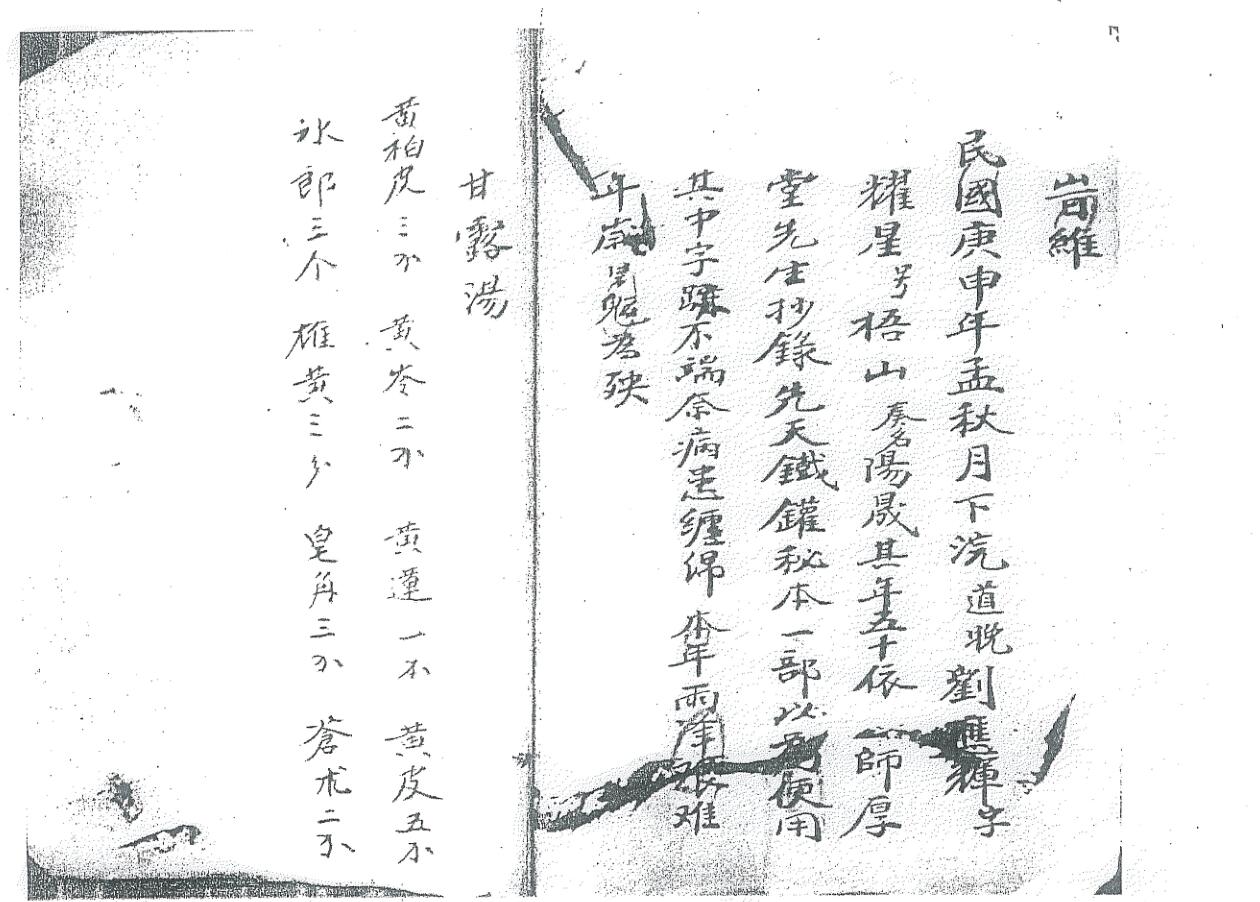 旹維
民國庚申年孟秋月下浣道晚劉應輝字
耀星号梧山奏名陽晟其年五十依 師厚
堂先生抄錄先天鐵鑵秘本一部以為便用
其中字蹟不端奈病患纏綿本年雨澤 难
年歲 魃為殃
甘露湯
黃柏皮三分 黃岑二分 黃蓮一分 黃皮五分
氷郎三个 雄黃三分 皂角三分 蒼朮二分